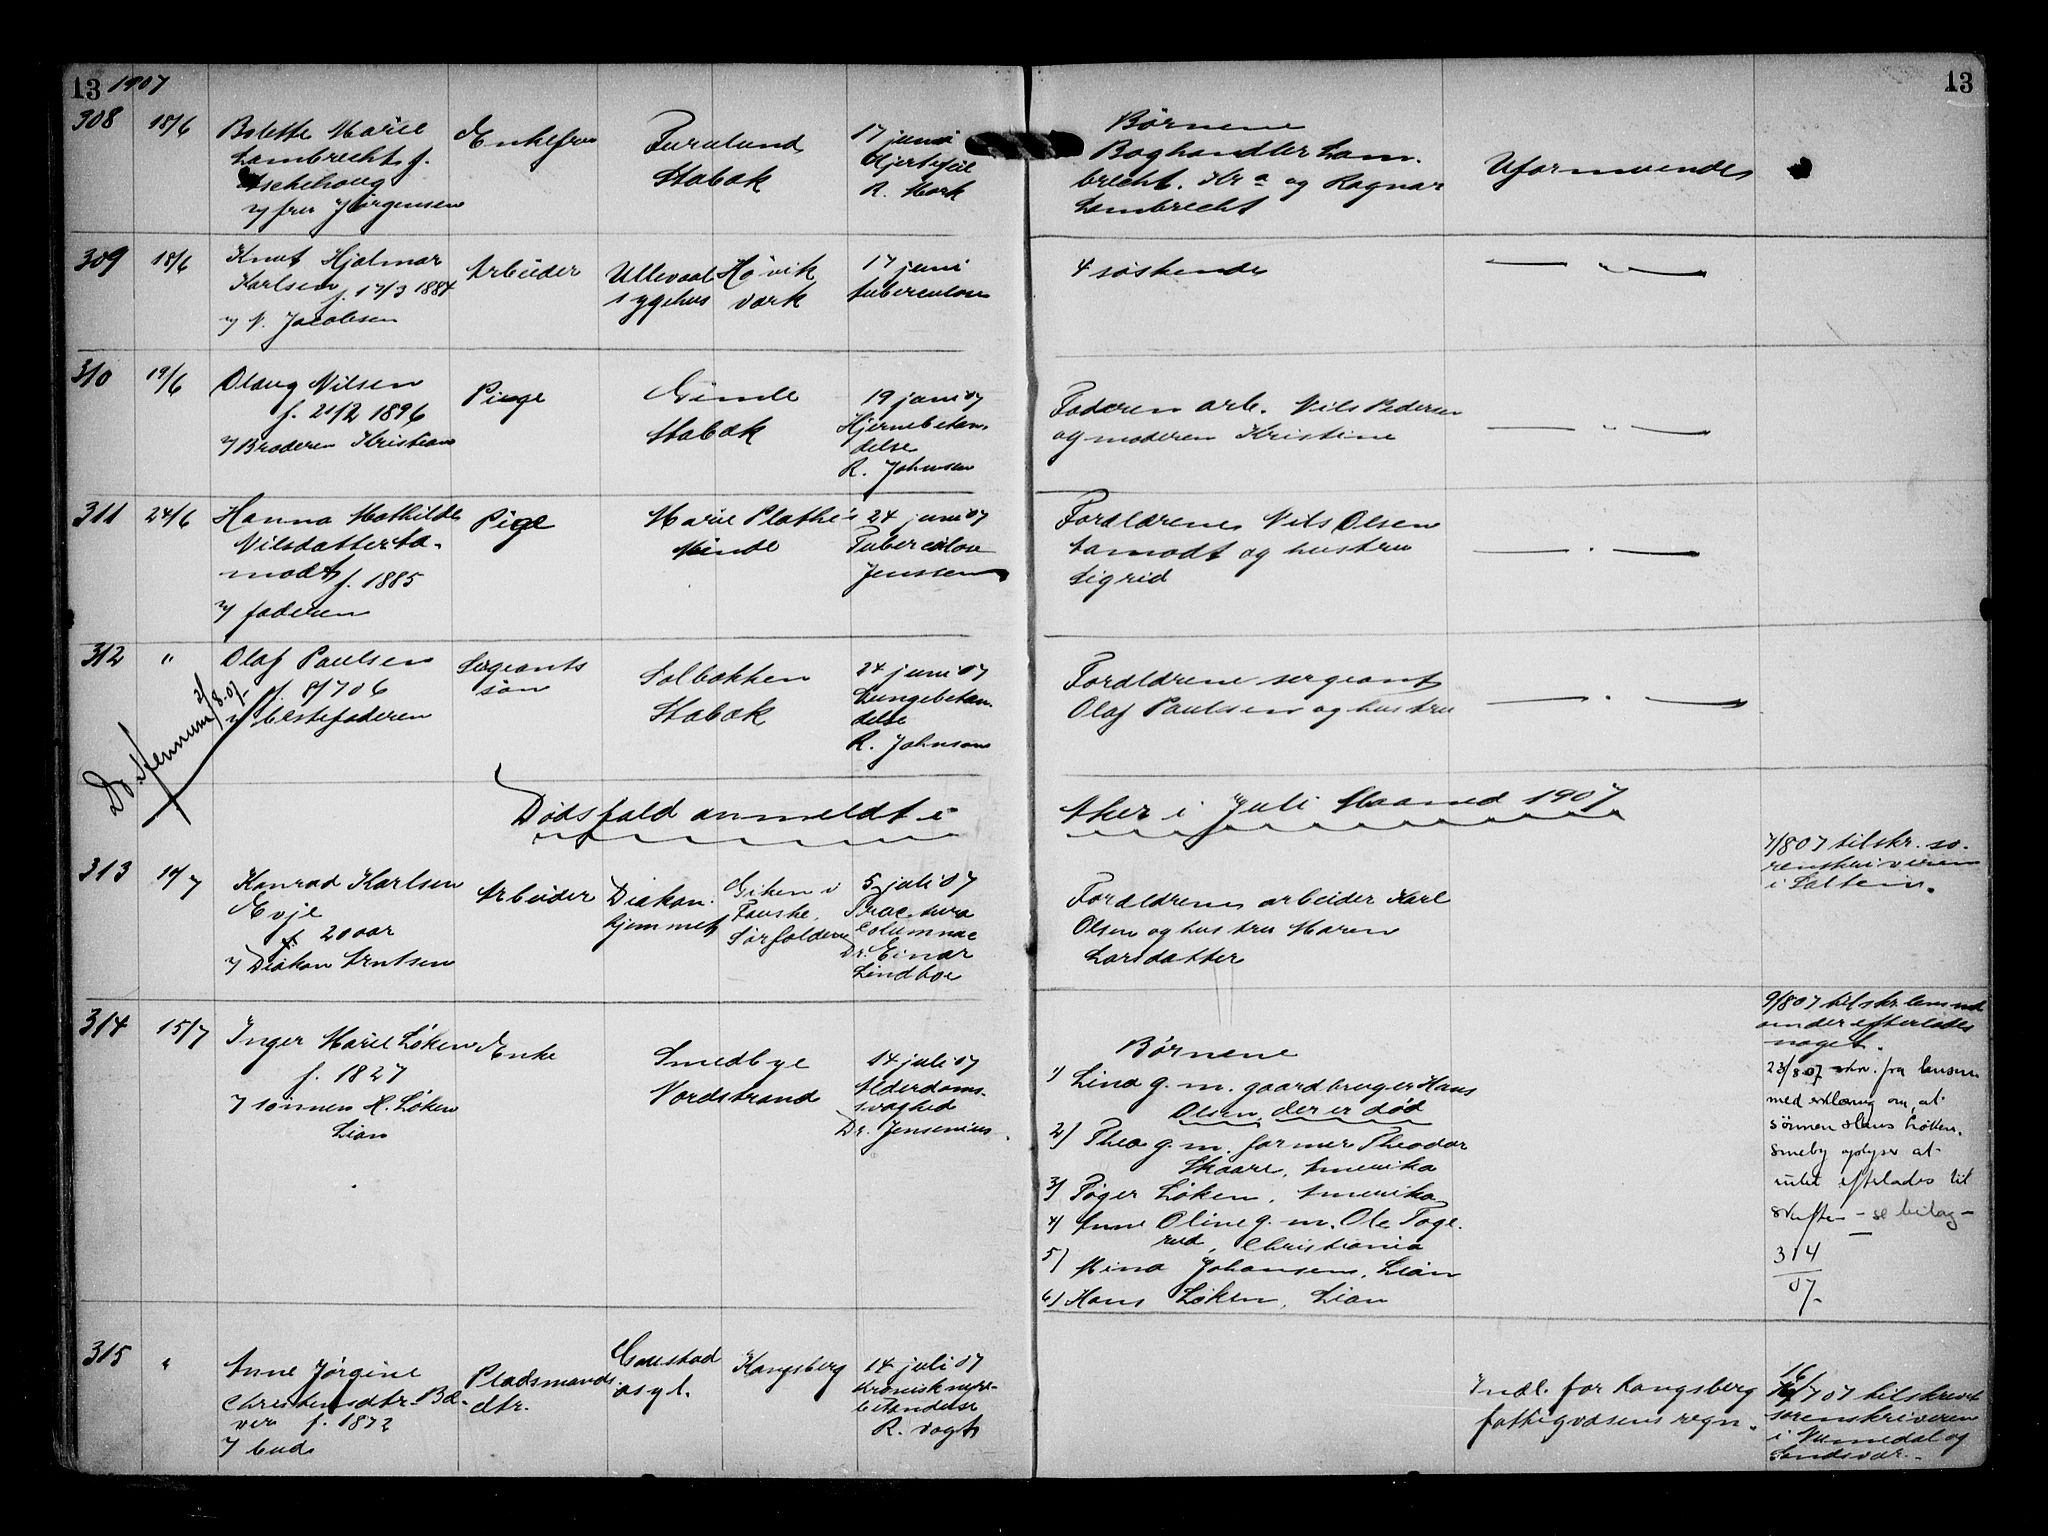 13 1907
13
308 18/6 Bolette Marie
Lambrecht f.
Aschehoug
v/ fru Jørgensen
Enkefru
Furulund
Stabæk
17 juni
Hjertefeil
R. Mork
Børnene
Boghandler Lam-
brecht. Kra og Ragnar
Lambrecht
Uformuende
309 18/6 Knut Hjalmar
Karlsen f. 17/3 1884
v/ N. Jacobsen
Arbeider
Ullevaal
sygehus
Høvik
værk
17 juni
tuberculose
4 søskende
— " —
310 19/6 Olaug Nilsen
f. 21/2 1896
v/ Broderen Kristian
Pige
Gimle
Stabæk
19 juni 07
Hjernebetæn-
delse
R. Johnsen
Faderen arb. Nils Pedersen
og moderen Kristine
— " —
311 24/6 Hanna Mathilde
Nilsdatter Aa-
modt f. 1885
v/ faderen
Pige
Marie Plathe's
Minde
24 juni 07
Tuberculose
Jenssen
Forældrene Nils Olsen
Aamodt og hustru
Sigrid
— " —
312 " Olaf Paulsen
f. 8/7 06
v/ bestefaderen
Sergeants
søn
Solbakken
Stabæk
24 juni 07
Lungebetæn-
delse
R. Johnsen
Forældrene sergeant
Olaf Paulsen og hustru
— " —
2/8.07.
Dødsfald anmeldt i
Aker i Juli Maaned 1907
313 14/7 Konrad Karlsen
Evje
f. 20 aar
v/ Diakon Arntsen
Arbeider
Diakon.
hjemmet
Giken i
Fauske,
Sørfolden
5 juli 07
Fractura
columnae
Dr. Einar
Lindboe
Forældrene arbeider Karl
Olsen og hustru Maren
Larsdatter
7/8 07 tilskr. so-
renskriveren
i Salten.
314 15/7 Inger Marie Løken
f. 1827
v/ sønnen H. Løken
Lian
Enke
Smedbye
Nordstrand
14 juli 07
Alderdoms-
svaghed
Dr. Jensenius.
Børnene
1) Lina g. m. gaardbruger Hans
Olsen, der er død
2) Thea g. m. farmer Theodor
Skaare, Amerika
3) Tøger Løken, Amerika
4) Anne Oline g. m. Ole Toge-
rud, Christiania
5) Mina Johansen, Lian
6) Hans Løken, Lian
9/8 07 tilskr. lensmd
om der efterlades
noget.
23/8 07 skr. fra lensm
med erklæring om, at
sønnen Hans Løken,
Smeby oplyser at
intet efterlades til
skifte - se bilag -
314
07.
315 " Anne Jørgine
Christensdtr. Bæ-
ver f. 1872
v/ bud
Pladsmands
dtr.
Gaustad
asyl.
Kongsberg
14 juli 07
Kronisk nyre-
betændelse
R. Vogt
Indl. for Kongsberg
fattigvæsens regn.
16/7 07 tilskrevet
sorenskriveren
i Numedal og
Sandsvær.